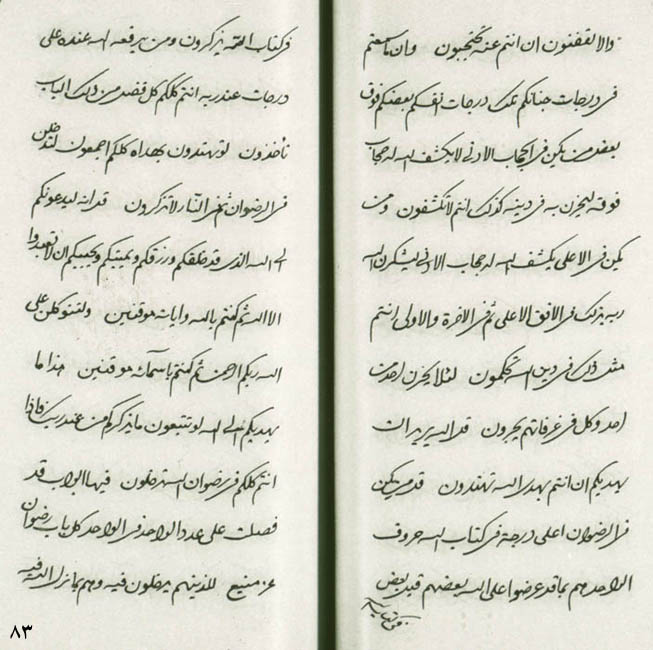 والا لقفنون ان انتم عنه تحتجبون وان ما سعتم
فی درجات جناتکم تلک درجات انفسکم بعضکم فوق
بعض من یکن فی الحجاب الادنی لا یکشف الله له حجاب
فوقه لیحزن به فی دینه کذلک انتم لا تکشفون ومن
یکن فی الاعلی یکشف الله له حجاب الادنی لیشکرن الله
ربه بذلک فی الافق الاعلی ثم فی الاخرة والاولی انتم
مثل ذلک فی دین الله تحکمون لئلا یحزن احد من
احد وکل فی غرفاتهم یحبرون قد الله یرید ان
یهدیکم ان انتم بهدی الله تهتدون قد من یکن
فی الرضوان اعلی درجة فی کتاب الله حروف
الواحد هم بما قد عرضوا علی الله بعضهم قبل بعض
فی کتاب الله یذکرون ومن یرفعه الله عنده علی
درجات عند ربه انتم کلکم کل فضل من ذلک الباب
تأخذون لو تهتدون بهداه کلکم اجمعون لتدخلن
فی الرضوان ثم فی النار لا تذکرون قد انه لیدعونکم
الی الله الذی قد خلقکم ورزقکم ویمیتکم ویحییکم ان لا تعبدوا
الا الله ثم کنتم بالله وایاته موقنین ولتتوکلن علی
الله ربکم الرحمن ثم کنتم باسمائه موقنین هذا ما
یهدیکم الی الله لو تتبعون ما یذکرکم من عند ربک فاذا
انتم کلکم فی رضوان الله تدخلون فیها ابواب قد
فصلت علی عدد الواحد فی الواحد کل باب رضوان
عز منیع للذینهم یدخلون فیه وهم بما نزل الله فیه
٨٣